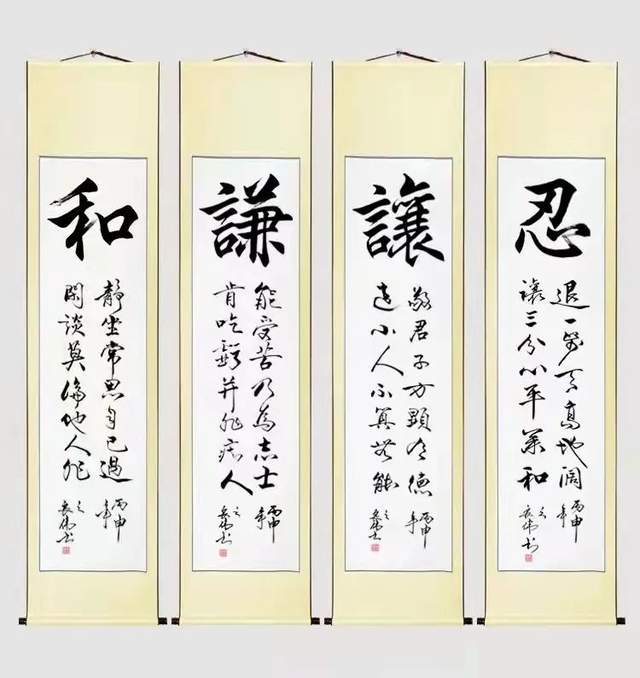 忍
退一步天高地闊
讓三分心平氣和
丙申年
讓
敬君子方顯有德
遠小人不算無能
丙申年
謙
能受苦乃為志士
肯吃虧并非痴人
丙申年
和
靜坐常思自己過
閑談莫論他人非
丙申年